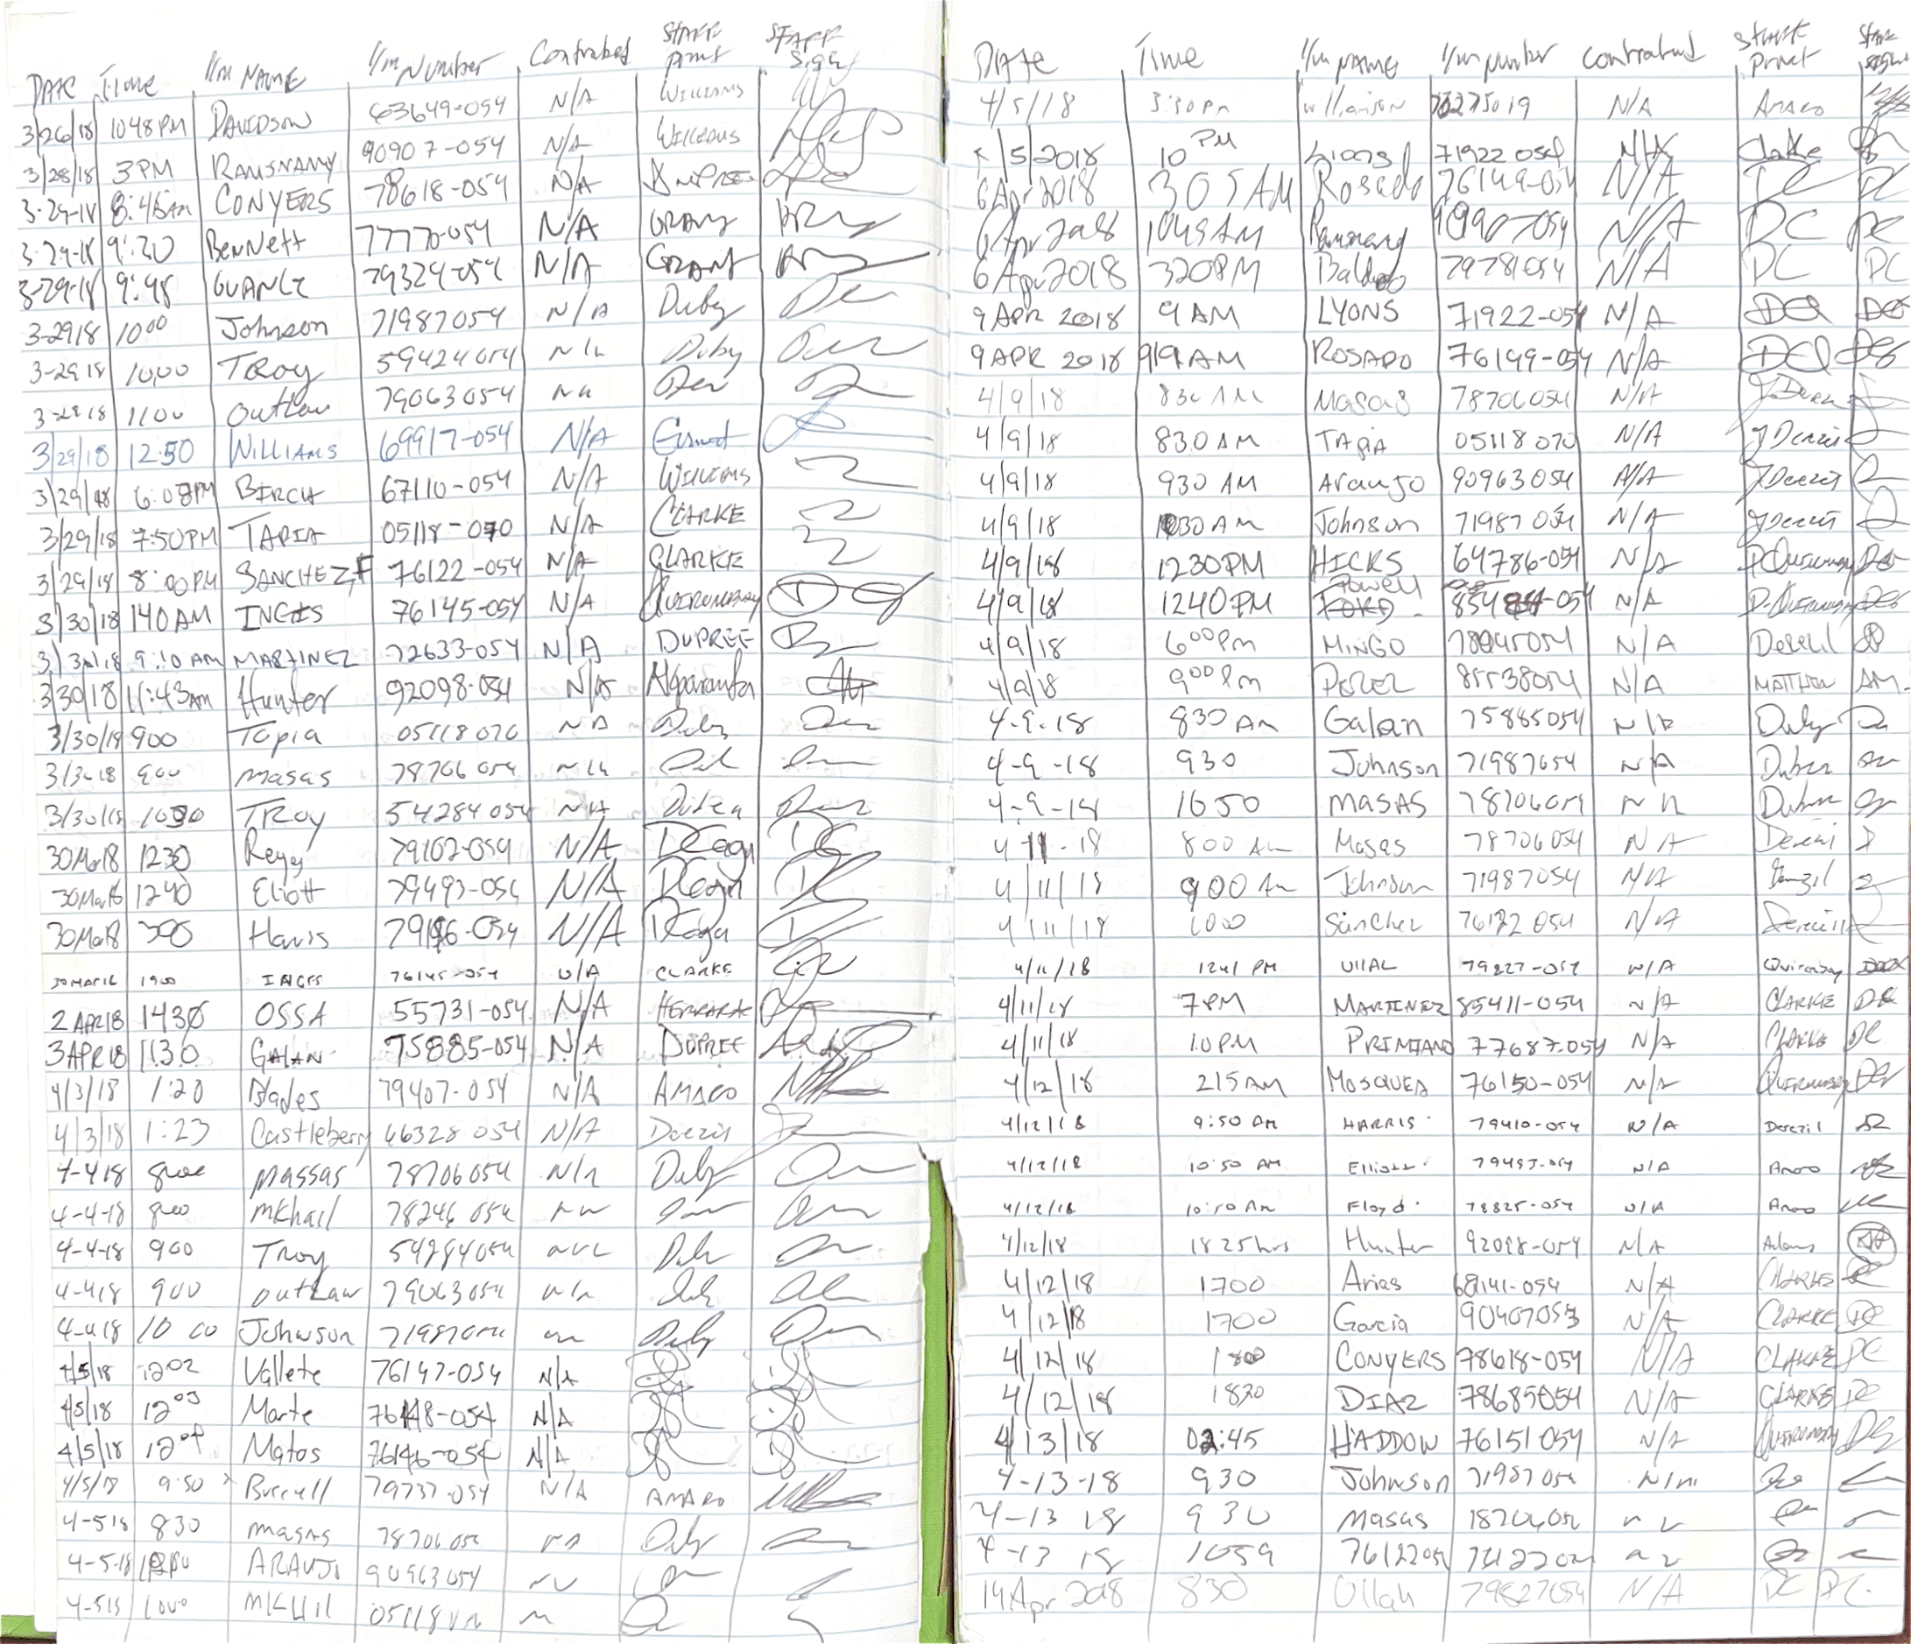 DATE Time I/m NAME I/m Number Contraband Staff print Staff Sign
3/26/18 1048 PM DAVIDSON 63649-054 N/A WILLIAMS
3/28/18 3PM RAMSNAMY 90907-054 N/A WILLIAMS
3-29-18 8:45am CONYERS 78618-054 N/A DUPREE
3-29-18 9:30 Bennett 77770-054 N/A GRANT
3-29-18 9:48 GUANCE 79324-054 N/A GRANT
3-2918 1000 Johnson 71987054 N/A Duby
3-29 18 1000 TRoy 59424054 N/A Duby
3-29 18 1100 Outlaw 79063054 NA
3/29/18 12:50 WILLIAMS 69917-054 N/A Grant
3/29/18 6:08PM BIRCH 67110-054 N/A WILLIAMS
3/29/18 7:50PM TAPIA 05118-070 N/A CLARKE
3/29/18 8:00PM SANCHEZ, F 76122-054 N/A CLARKE
3/30/18 140AM 76145-054 N/A QUIRUMBAY
3/30/18 9:10 AM MARTINEZ 72633-054 N/A DUPREE
3/30/18 11:43am Hunter 92098-054 N/A
3/30/18 900 Tapia 05118070 NA Duby
3/30 18 900 masas 78706 054 N/A
3/30/18 1030 TRoy 54284 054 NA
30Mar18 1230 Reyes 79102-054 N/A DCagin
30Mar18 1240 Eliott 79493-054 N/A DCagin
30Mar18 300 Harris 79196-054 N/A DCagin
30MAR18 1900 76145-054 N/A CLARKE
2 APR18 1430 OSSA 55731-054 N/A
3APR18 1130 GALAN 75885-054 N/A DUPREE
4/3/18 1:20 Blades 79407-054 N/A AMARO
4/3/18 1:23 Castleberry 66328 054 N/A Derezil
4-4 18 800 massas 78706054 N/A Duby
4-4-18 800 mkhail 78246 054
4-4-18 900 Troy 54284054
4-418 900 outlaw 79063054
4-418 10 00 Johnson 71987054 Duby
4/5/18 1202 Vallete 76147-054 N/A
4/5/18 1203 Marte 76148-054 N/A
4/5/18 1204 Matos 76146-054 N/A
4/5/18 9:50 Burrell 79737-054 N/A AMARO
4-518 830 masas 78706 054 NA Duby
4-5-18 ARAUJO 90963054
4-518 1000
DATE Time I/m NAME I/m number contraband Staff Print Staff sign
4/5/18 3:30pm williamson 78275019 N/A AMARO
4/5/2018 10 PM Lionel 71922 054 N/A Clarke
6Apr2018 305AM Rosado 76149-054 N/A DC
6 Apr 2018 1049AM Ramsnany 90907054 N/A DC
6 Apr 2018 320PM 79781054 N/A DC DC
9APR 2018 9 AM LYONS 71922-054 N/A
9APR 2018 919 AM ROSADO 76149-054 N/A
4/9/18 830 AM Masas 78706054 N/A J Derezil
4/9/18 830 AM TAPIA 05118070 N/A J Derezil
4/9/18 930 AM Araujo 90963054 N/A J Derezil
4/9/18 1030 AM Johnson 71987 054 N/A J Derezil
4/9/18 1230PM HICKS 64786-054 N/A D. Quirumbay
4/9/18 1240PM Powell N/A D. Quirumbay
4/9/18 600pm MINGO 78945054 N/A Derezil
4/9/18 900pm PEREZ 85538054 N/A MATTHEW AM.
4-9-18 830 Am Galan 75885054 N/A Duby
4-9-18 930 Johnson 71987054 N/A
4-9-18 1050 MASAS 78706054
4-11-18 800 Am Masas 78706054 N/A Derezil
4/11/18 900 Am Johnson 71987054 N/A Derezil
4/11/18 1000 Sanchez 76122 054 N/A Derezil
4/11/18 1241 PM ULLAL 79827-054 N/A Quirumbay
4/11/18 7PM MARTINEZ 85411-054 N/A CLARKE DC
4/11/18 10PM PRIMIANO 77687-054 N/A CLARKE DC
4/12/18 215AM MOSQUEA 76150-054 N/A QUIRUMBAY
4/12/18 9:50 AM HARRIS 79410-054 N/A Derezil
4/12/18 10:50 AM Elliott 79493-054 N/A Amaro
4/12/18 10:50 AM Floyd 78825-054 N/A Amaro
4/12/18 1825hrs Hunter 92098-054 N/A Adams
4/12/18 1700 Arias 68141-054 N/A CLARKE
4/12/18 1700 Garcia 90407053 N/A CLARKE DC
4/12/18 1800 CONYERS 78618-054 N/A CLARKE DC
4/12/18 1830 DIAZ 78685054 N/A CLARKE DC
4/13/18 02:45 HADDOW 76151054 N/A QUIRUMBAY
4-13-18 930 Johnson 71987054
4-13 18 930 masas 18706054
4-13 18 1059 76122054 76122054
14 Apr 2018 830 Ullah 79827054 N/A DC DC